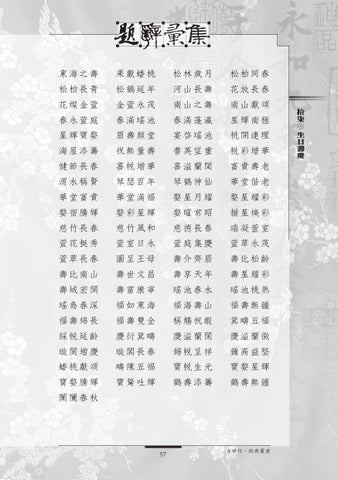 題辭彙集
東海之壽 果獻蟠桃 松林歲月 松柏同春
松柏長青 松鶴延年 河山長壽 花放長春
花燦金萱 金萱永茂 南山之壽 南山獻頌
春永萱庭 春滿瑤池 春滿蓬瀛 星輝南極
星輝寶婺 眉壽顏堂 宴啓瑤池 桃開連理
海屋添籌 祝無量壽 耆英望重 帨彩增華
健節長春 喜帨增華 喜溢蘭閨 富貴壽考
渭水稱賢 琴瑟百年 琴鶴神仙 華堂偕老
華堂富貴 華堂滿福 婺星月耀 婺星耀彩
婺宿騰輝 婺彩星輝 婺曜常昭 婺星煥彩
慈竹長春 慈竹風和 慈德長春 瑞凝萱室
萱花挺秀 萱室日永 萱庭集慶 萱草永茂
萱草長春 圖呈王母 壽介齊眉 壽比松齡
壽比南山 壽世文昌 壽享天年 壽星耀彩
壽域宏開 壽富康寧 瑤池春永 瑤池桃熟
瑤島春深 福如東海 福海壽山 福壽無疆
福壽綿長 福壽雙全 稱觴祝嘏 箕疇五福
綵帨延齡 慶衍箕疇 慶溢蘭閨 慶溢蘭徵
璇閣增慶 璇閣長春 錦帨呈祥 彌高益堅
蟠桃獻頌 疇陳五福 寶帨生光 寶婺星輝
寶婺騰輝 寶婺吐輝 鶴壽添籌 鶴壽無疆
春秋
拾柒 生日壽慶
97